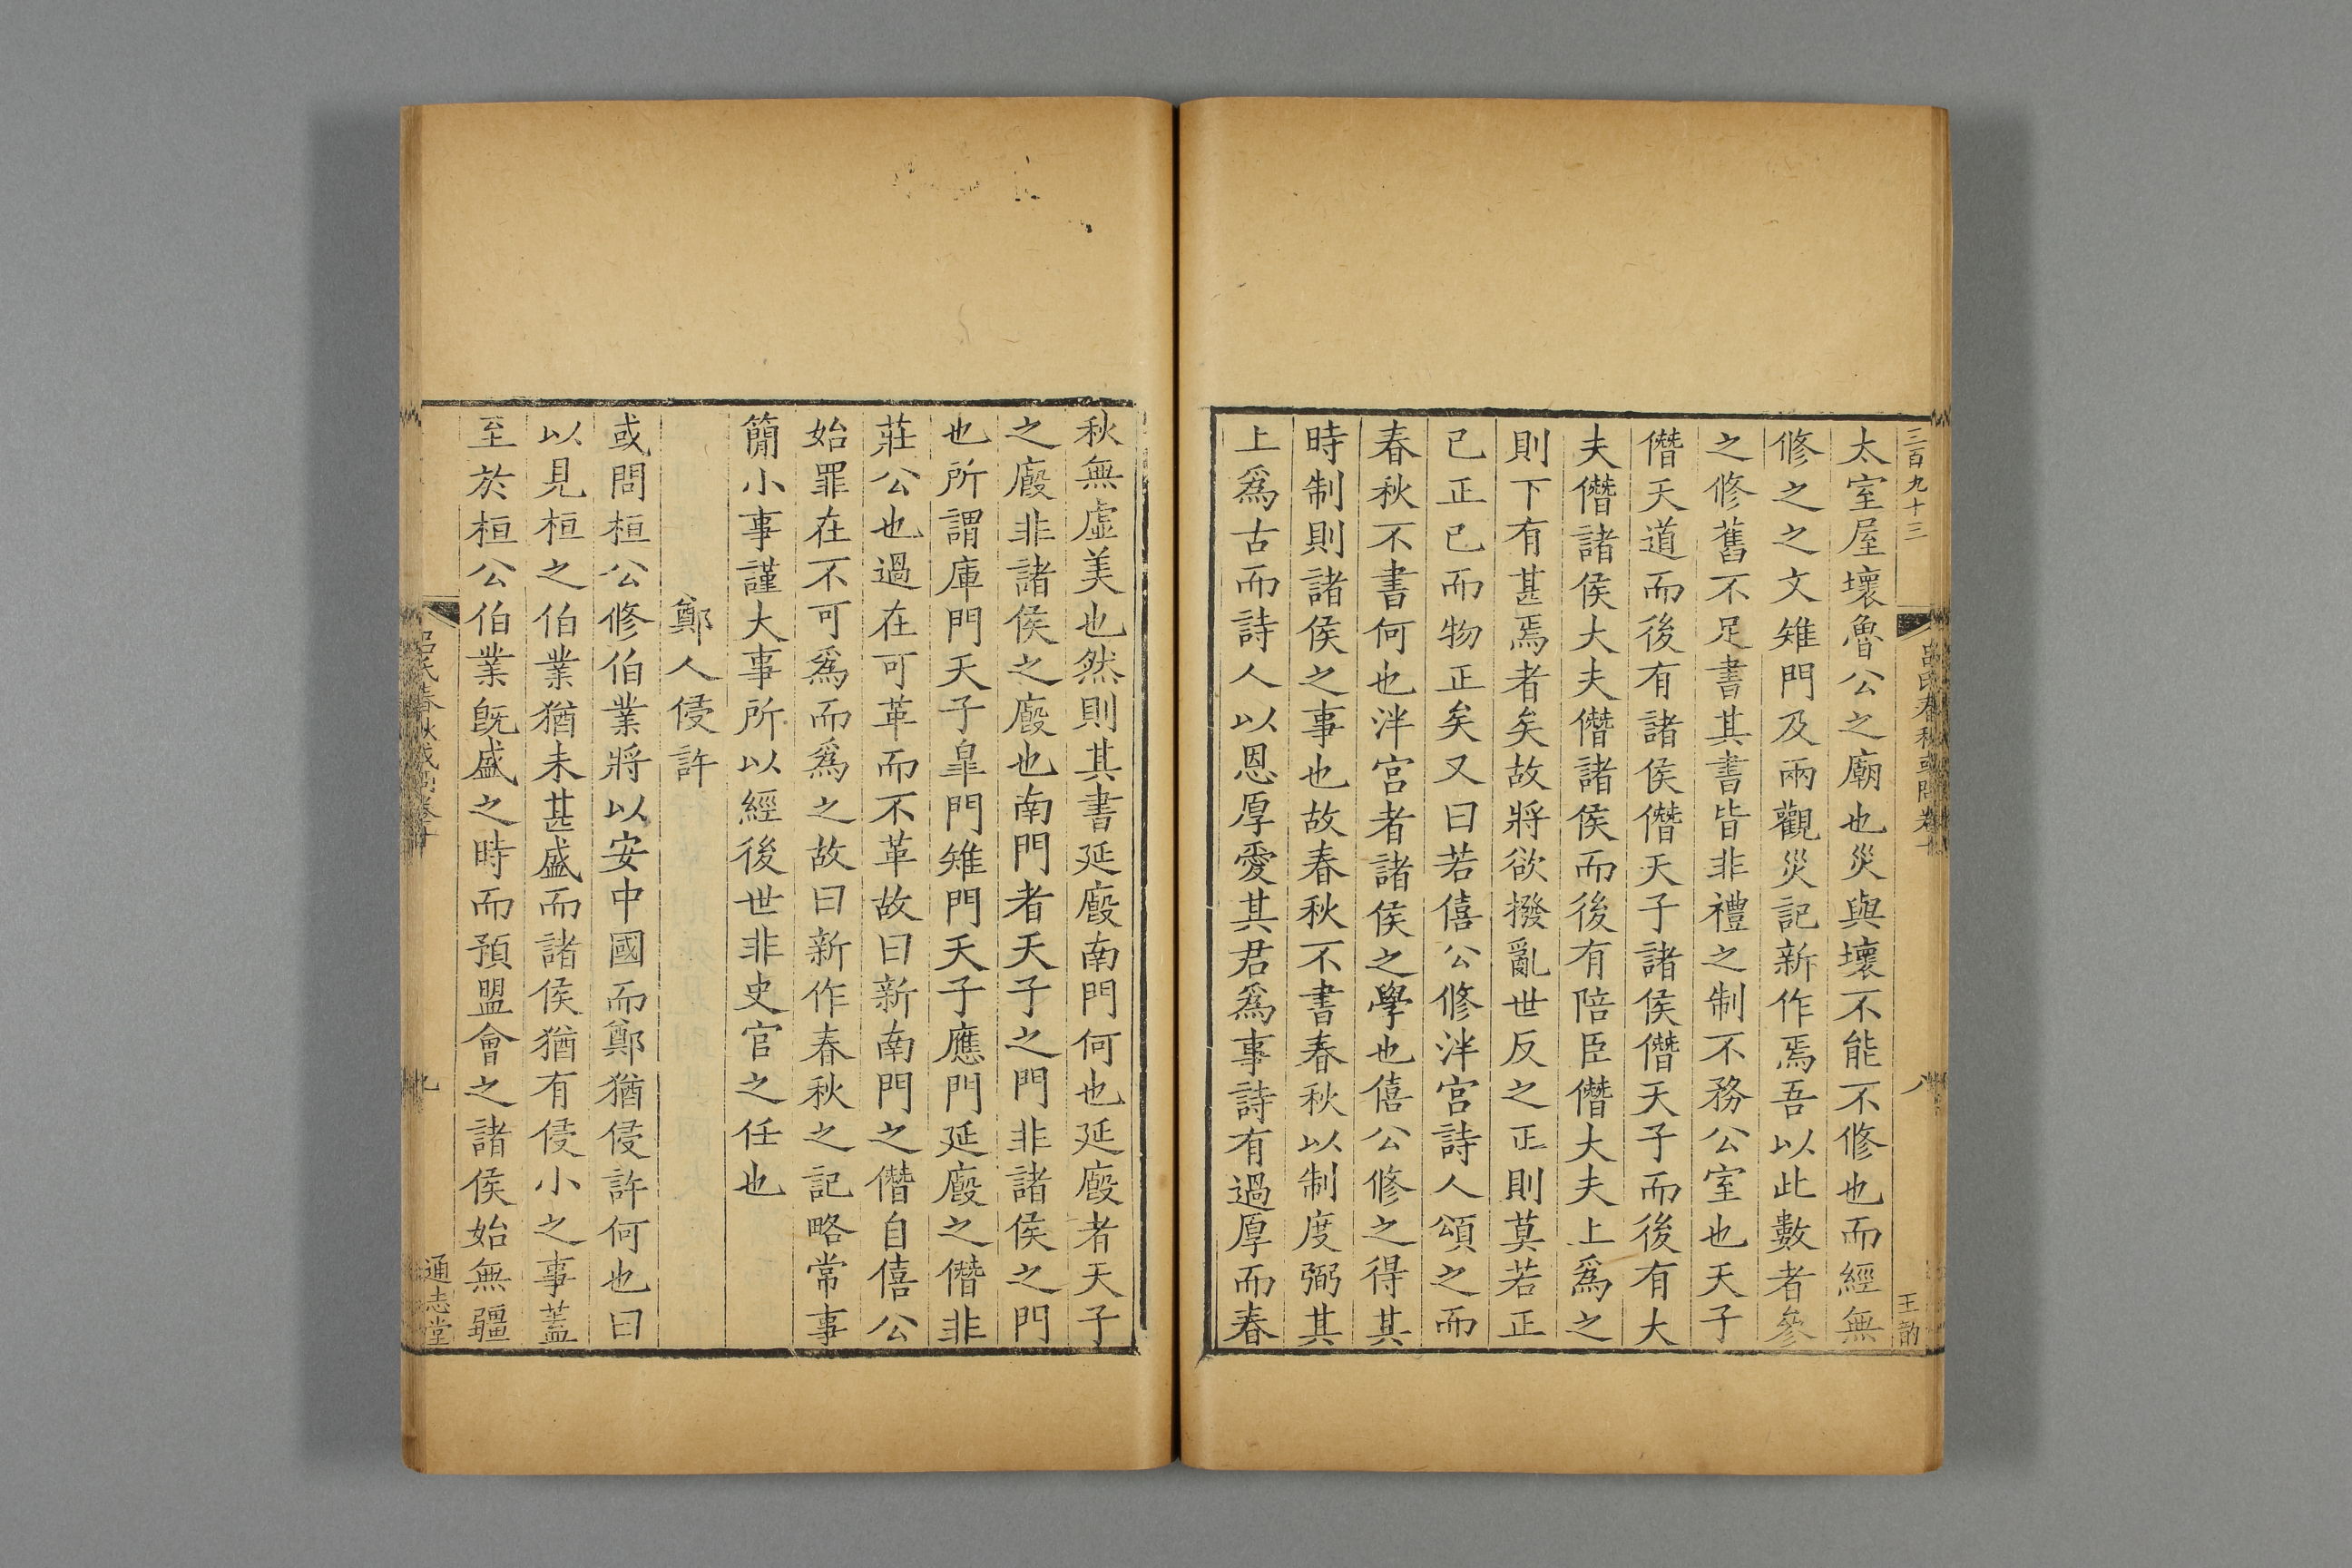 三百九十三
呂氏春秋或問卷十
八
王韵
太室屋壞魯公之廟也災與壞不能不修也而經無
修之之文雉門及兩觀災記新作焉吾以此數者參
之修舊不足書其書皆非禮之制不務公室也天子
僭天道而後有諸侯僭天子諸侯僭天子而後有大
夫僭諸侯大夫僭諸侯而後有陪臣僭大夫上爲之
則下有甚焉者矣故將欲撥亂世反之正則莫若正
已正已而物正矣又曰若僖公修泮宮詩人頌之而
春秋不書何也泮宮者諸侯之學也僖公修之得其
時制則諸侯之事也故春秋不書春秋以制度弼其
上爲古而詩人以恩厚愛其君爲事詩有過厚而春
秋無虛美也然則其書延廄南門何也延廄者天子
之廄非諸侯之廄也南門者天子之門非諸侯之門
也所謂庫門天子臯門雉門天子應門延廄之僭非
莊公也過在可革而不革故曰新南門之僭自僖公
始罪在不可爲而爲之故曰新作春秋之記略常事
簡小事謹大事所以經後世非史官之任也
鄭人侵許
或問桓公修伯業將以安中國而鄭猶侵許何也曰
以見桓之伯業猶未甚盛而諸侯猶有侵小之事蓋
至於桓公伯業既盛之時而預盟會之諸侯始無疆
呂氏春秋或問卷十
九
通志堂